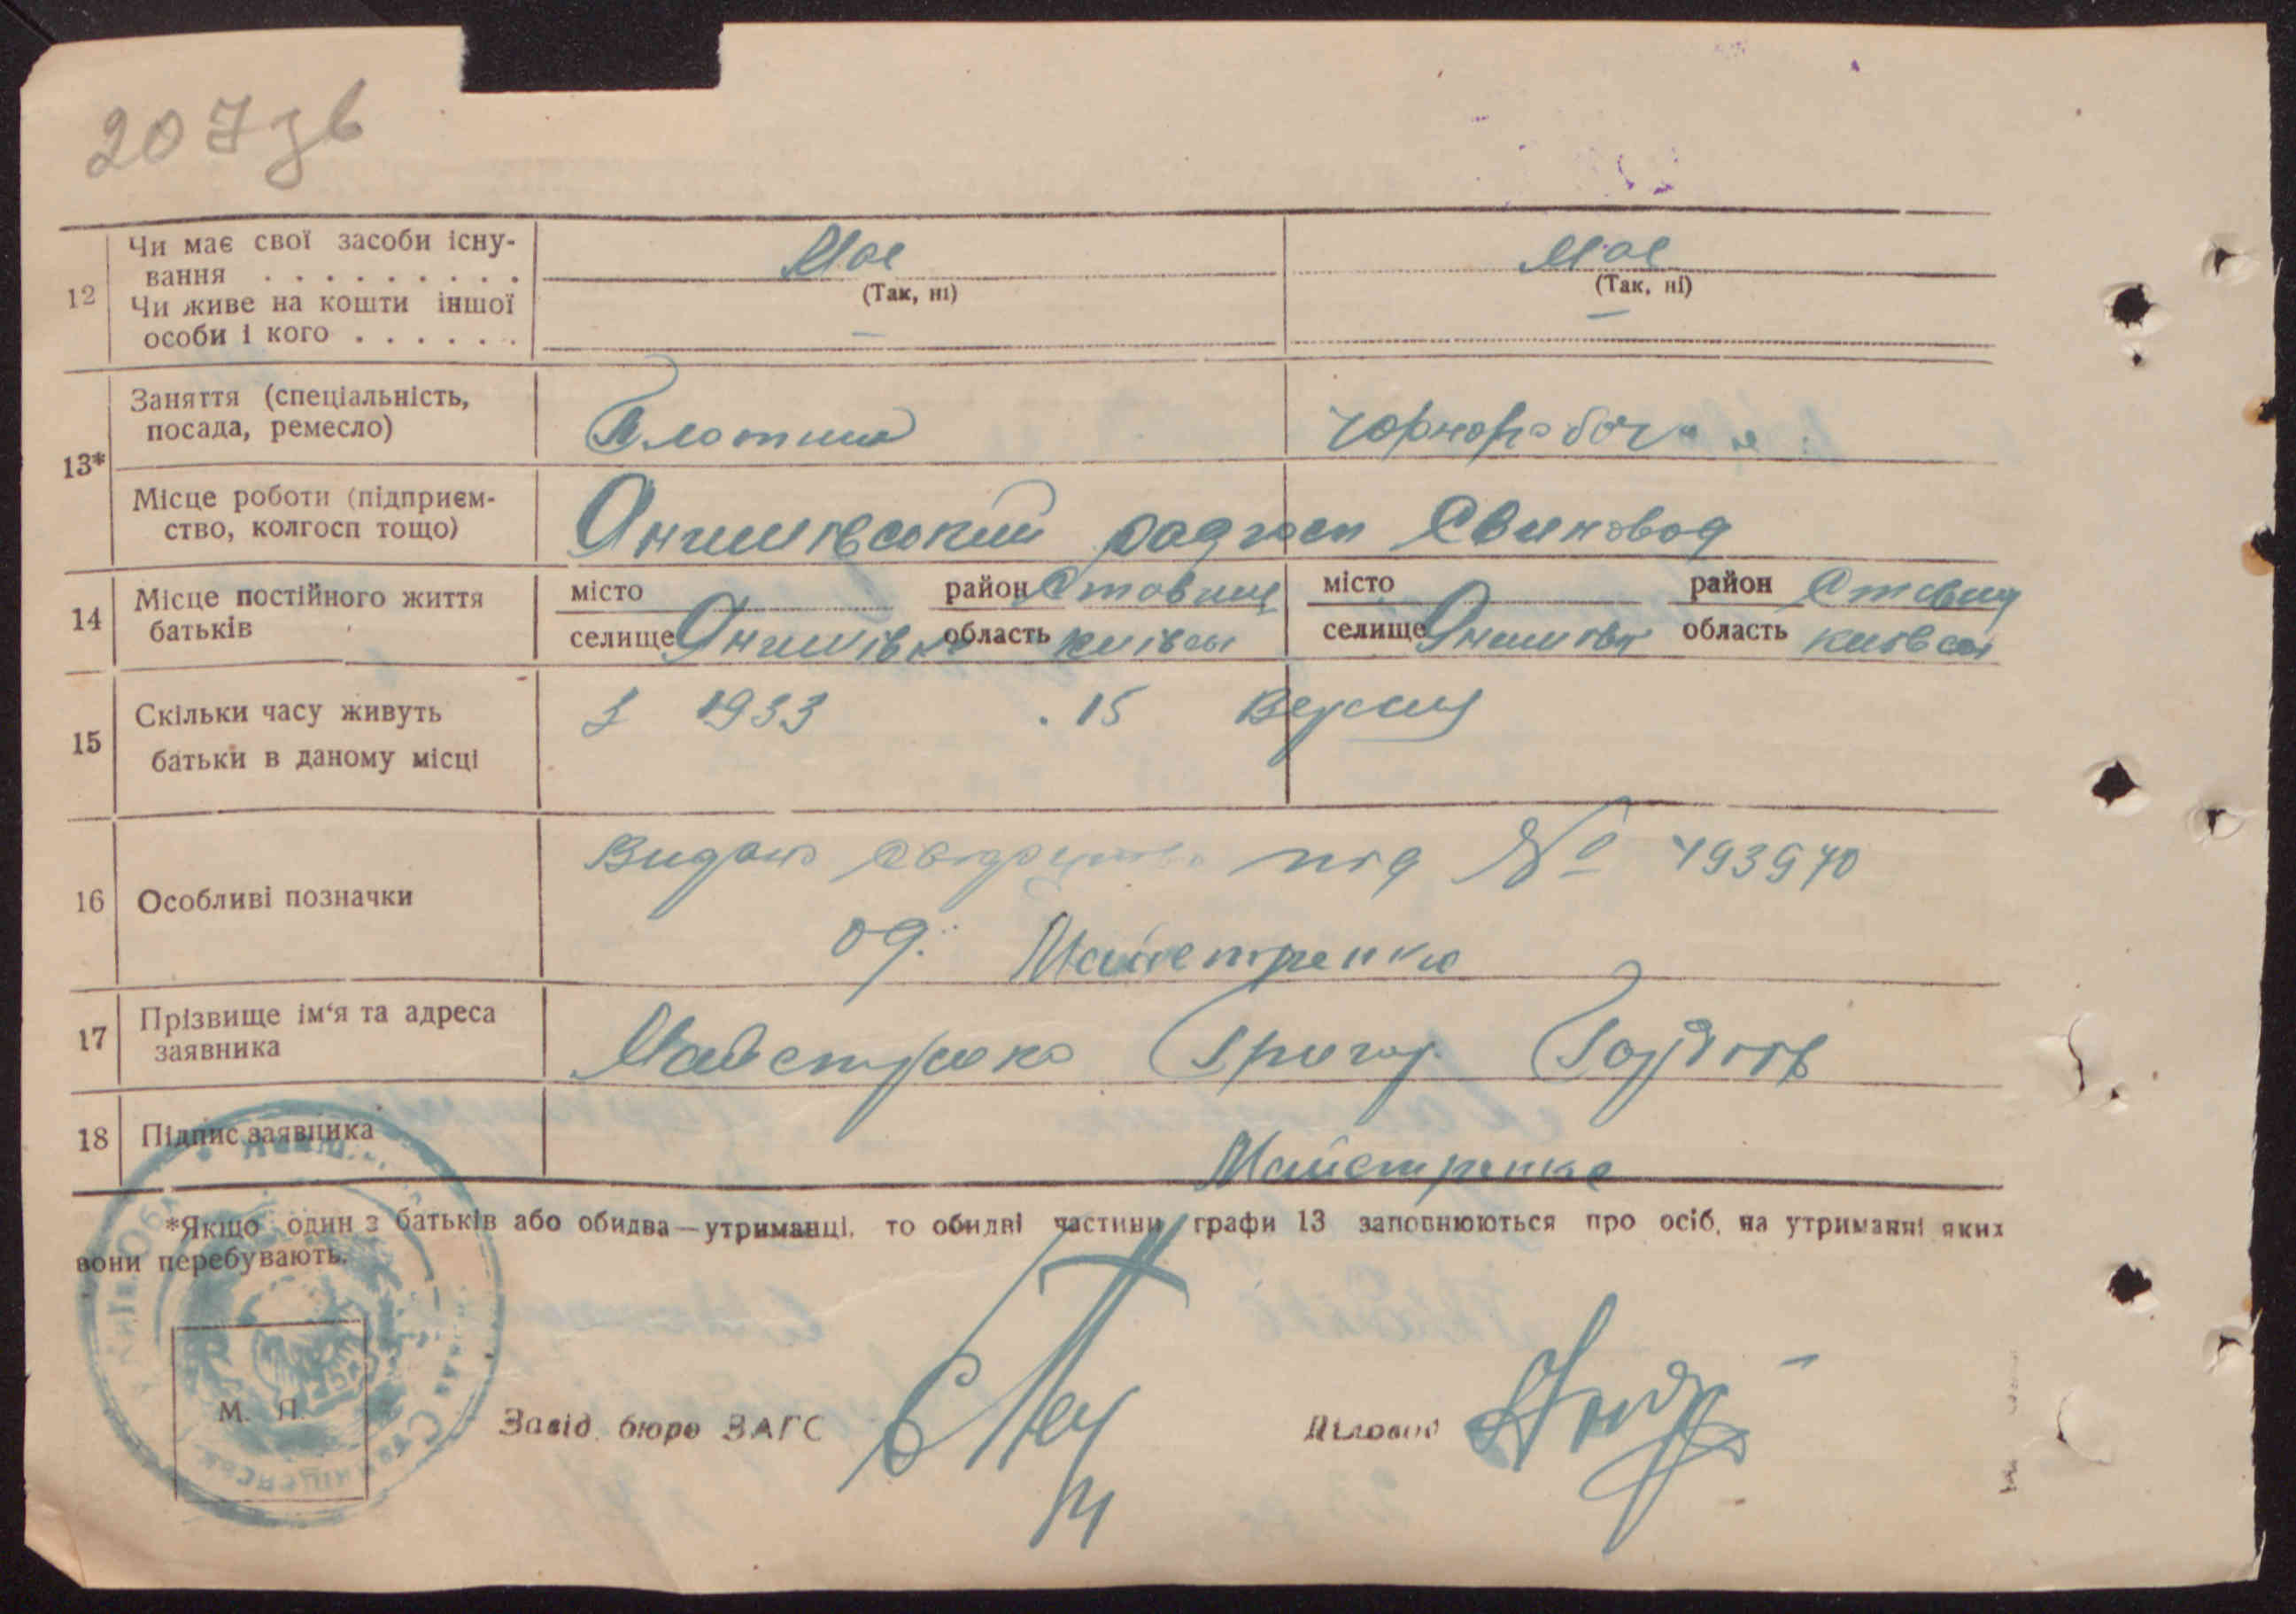 207 зв
12 Чи має свої засоби існу-
вання . . . . . . . . . Має Має
(Так, ні) (Так, ні)
Чи живе на кошти іншої
особи і кого . . . . . . — —
13* Заняття (спеціальність,
посада, ремесло) Плотник чорноробоч
Місце роботи (підприєм-
ство, колгосп тощо) Янишівський радгосп Свиновод
14 Місце постійного життя
батьків
місто район Ставищ місто район Ставищ
селище Янишівка область київськ селище область київськ
15 Скільки часу живуть
батьки в даному місці
з 1933 . 15 Вересня
16 Особливі позначки
Видано свідоцтво під № 493970
од: Майстренко
17 Прізвище ім'я та адреса
заявника
Майстренко Григор
18 Підпис заявника
Майстренко
*Якщо один з батьків або обидва—утриманці, то обидві частини графи 13 заповнюються про осіб, на утриманні яких
вони перебувають.
М. П.
Завід. бюро ЗАГС Діловод